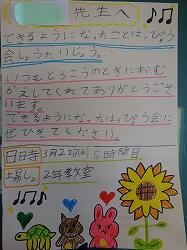 先生へ
できるようになったことはっぴょう
会しょうたいじょう。
いつもとうこうのときにおむ
かえしてくれてありがとうござ
います。
できるようになったはっぴょう会に
ぜひきてください。
日日寺 3月22日(水)5時間目
2年教室